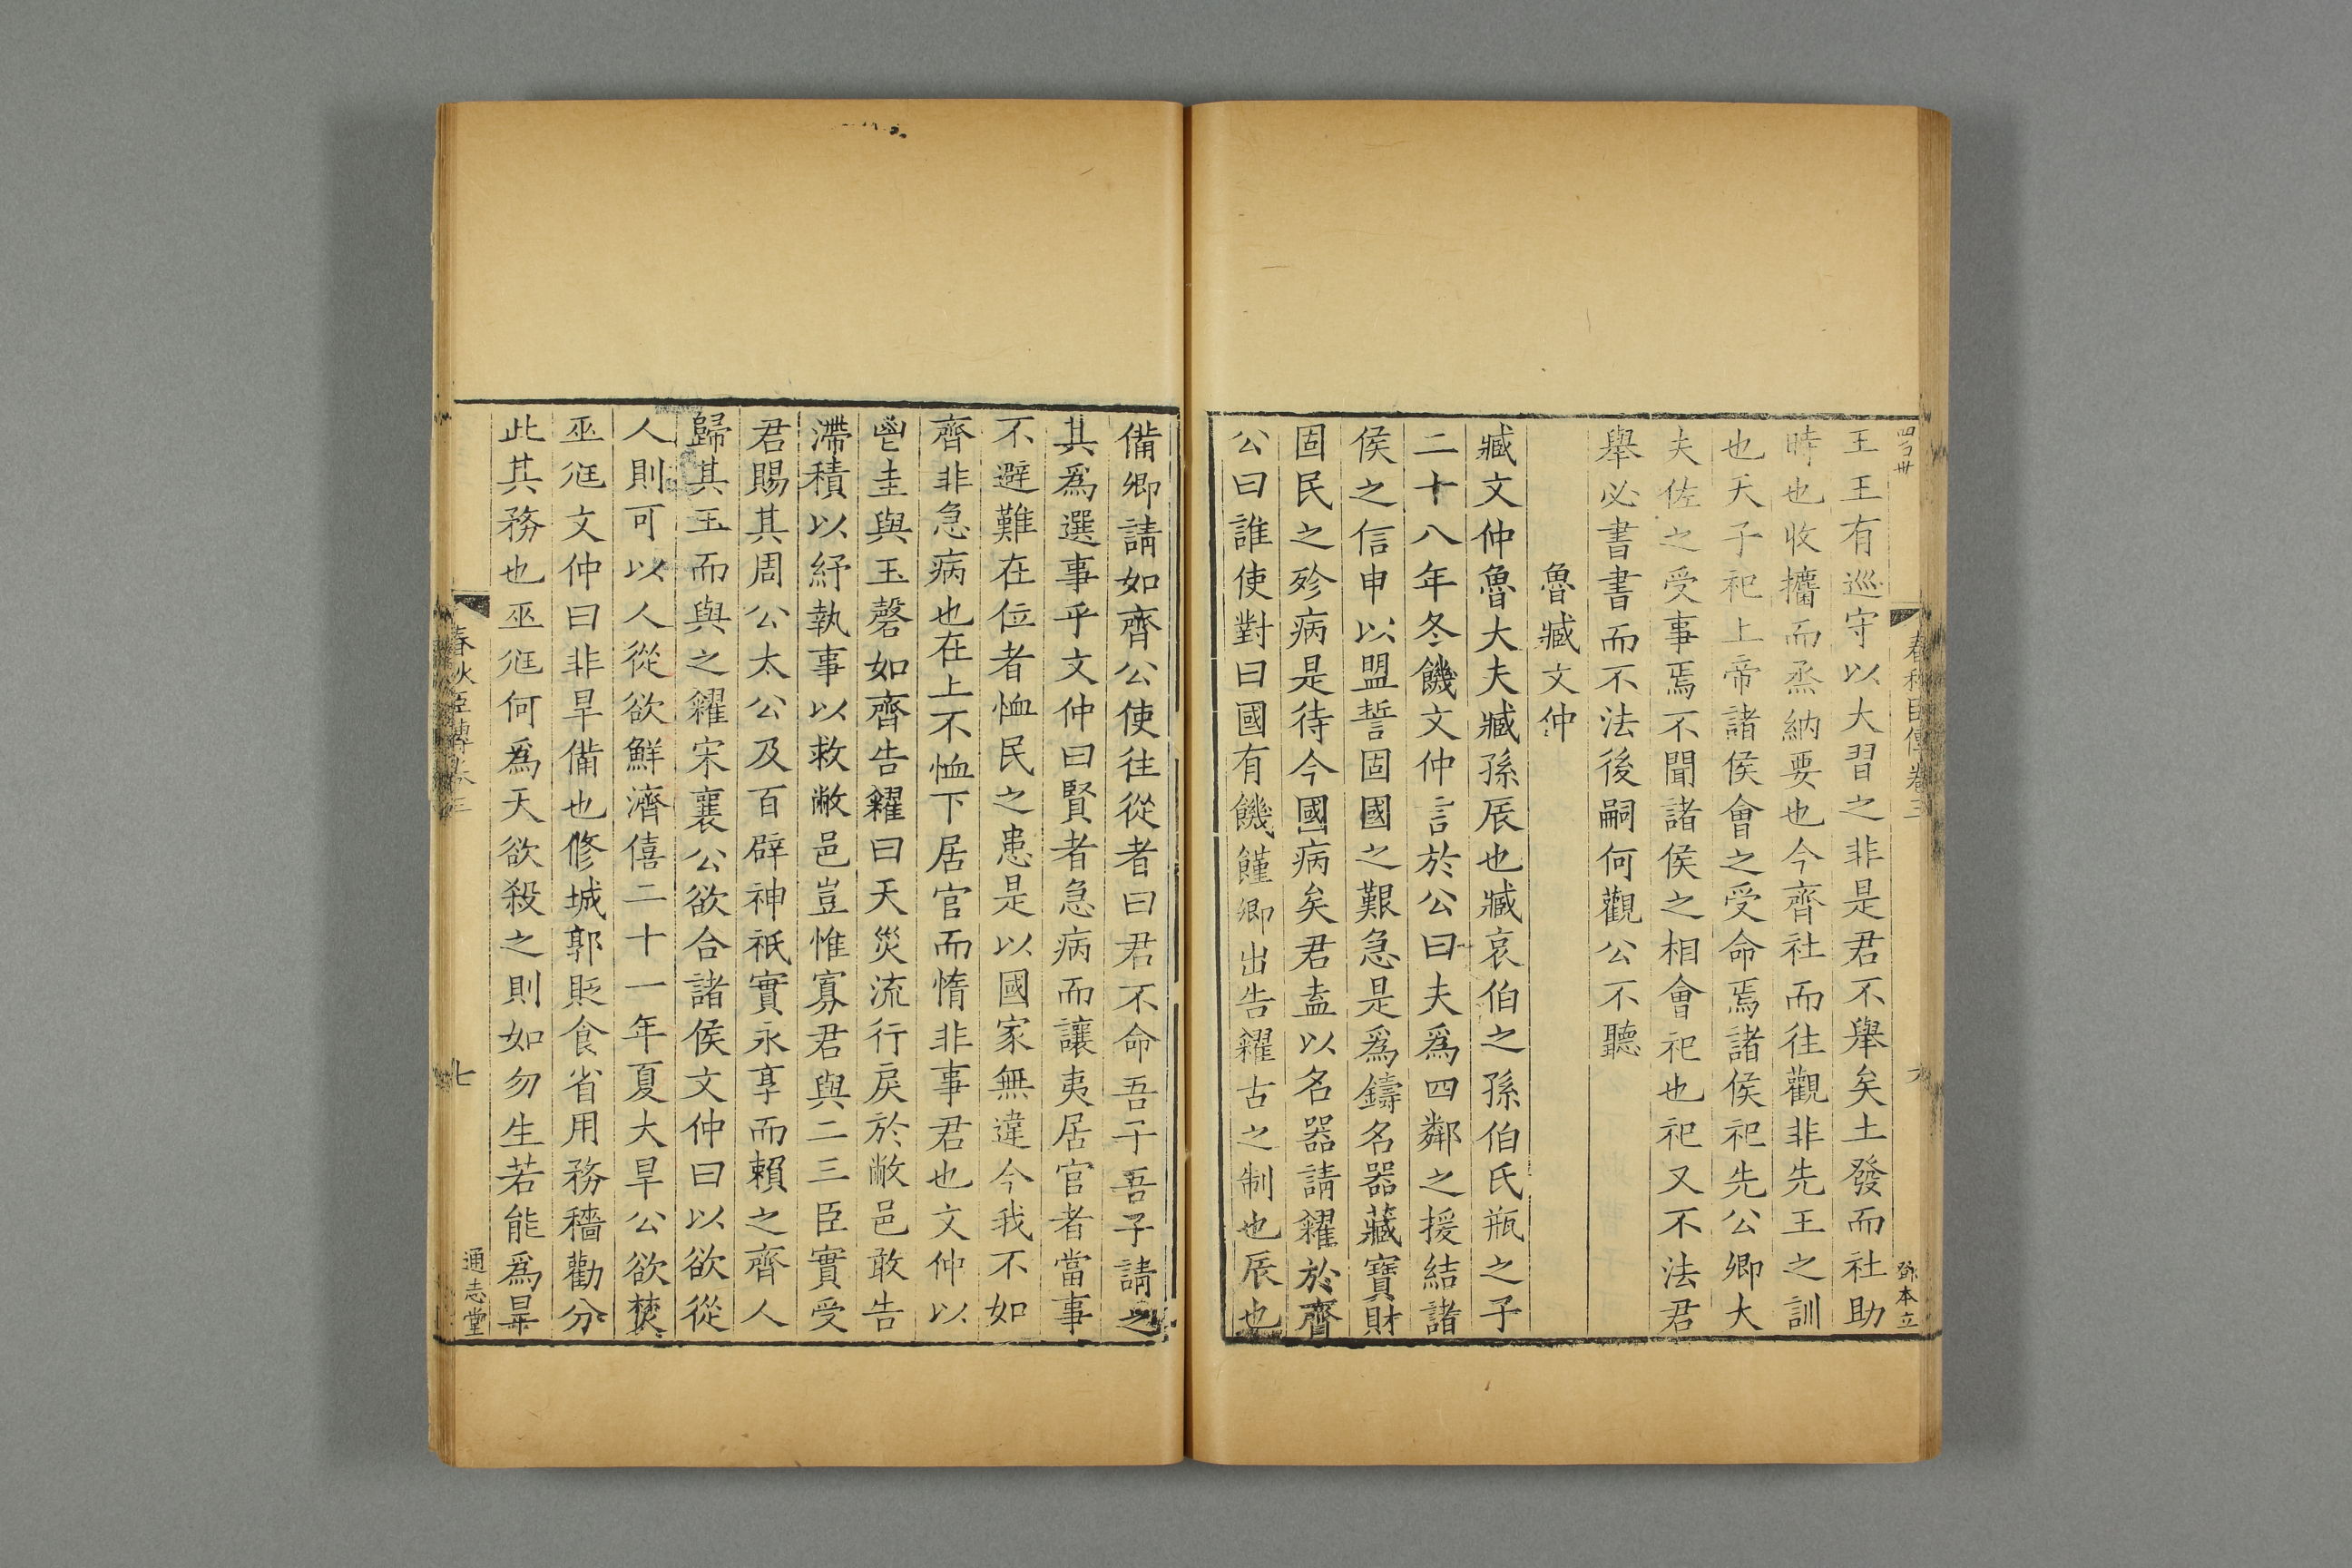 四百卅
春秋臣傳卷三
六
鄧本立
王王有巡守以大習之非是君不舉矣土發而社助
時也收攟而烝納要也今齊社而往觀非先王之訓
也天子祀上帝諸侯會之受命焉諸侯祀先公卿大
夫佐之受事焉不聞諸侯之相會祀也祀又不法君
舉必書書而不法後嗣何觀公不聽
魯臧文仲
臧文仲魯大夫臧孫辰也臧哀伯之孫伯氏瓶之子
二十八年冬饑文仲言於公曰夫爲四鄰之援結諸
侯之信申以盟誓固國之艱急是爲鑄名器藏寶財
固民之殄病是待今國病矣君盍以名器請糴於齊
公曰誰使對曰國有饑饉卿出告糴古之制也辰也
備卿請如齊公使往從者曰君不命吾子吾子請之
其爲選事乎文仲曰賢者急病而讓夷居官者當事
不避難在位者恤民之患是以國家無違今我不如
齊非急病也在上不恤下居官而惰非事君也文仲以
鬯圭與玉磬如齊告糴曰天災流行戾於敝邑敢告
滯積以紓執事以救敝邑豈惟寡君與二三臣實受
君賜其周公太公及百辟神祇實永享而賴之齊人
歸其玉而與之糴宋襄公欲合諸侯文仲曰以欲從
人則可以人從欲鮮濟僖二十一年夏大旱公欲焚
巫尪文仲曰非旱備也修城郭貶食省用務穡勸分
此其務也巫尪何爲天欲殺之則如勿生若能爲旱
春秋臣傳卷三
七
通志堂